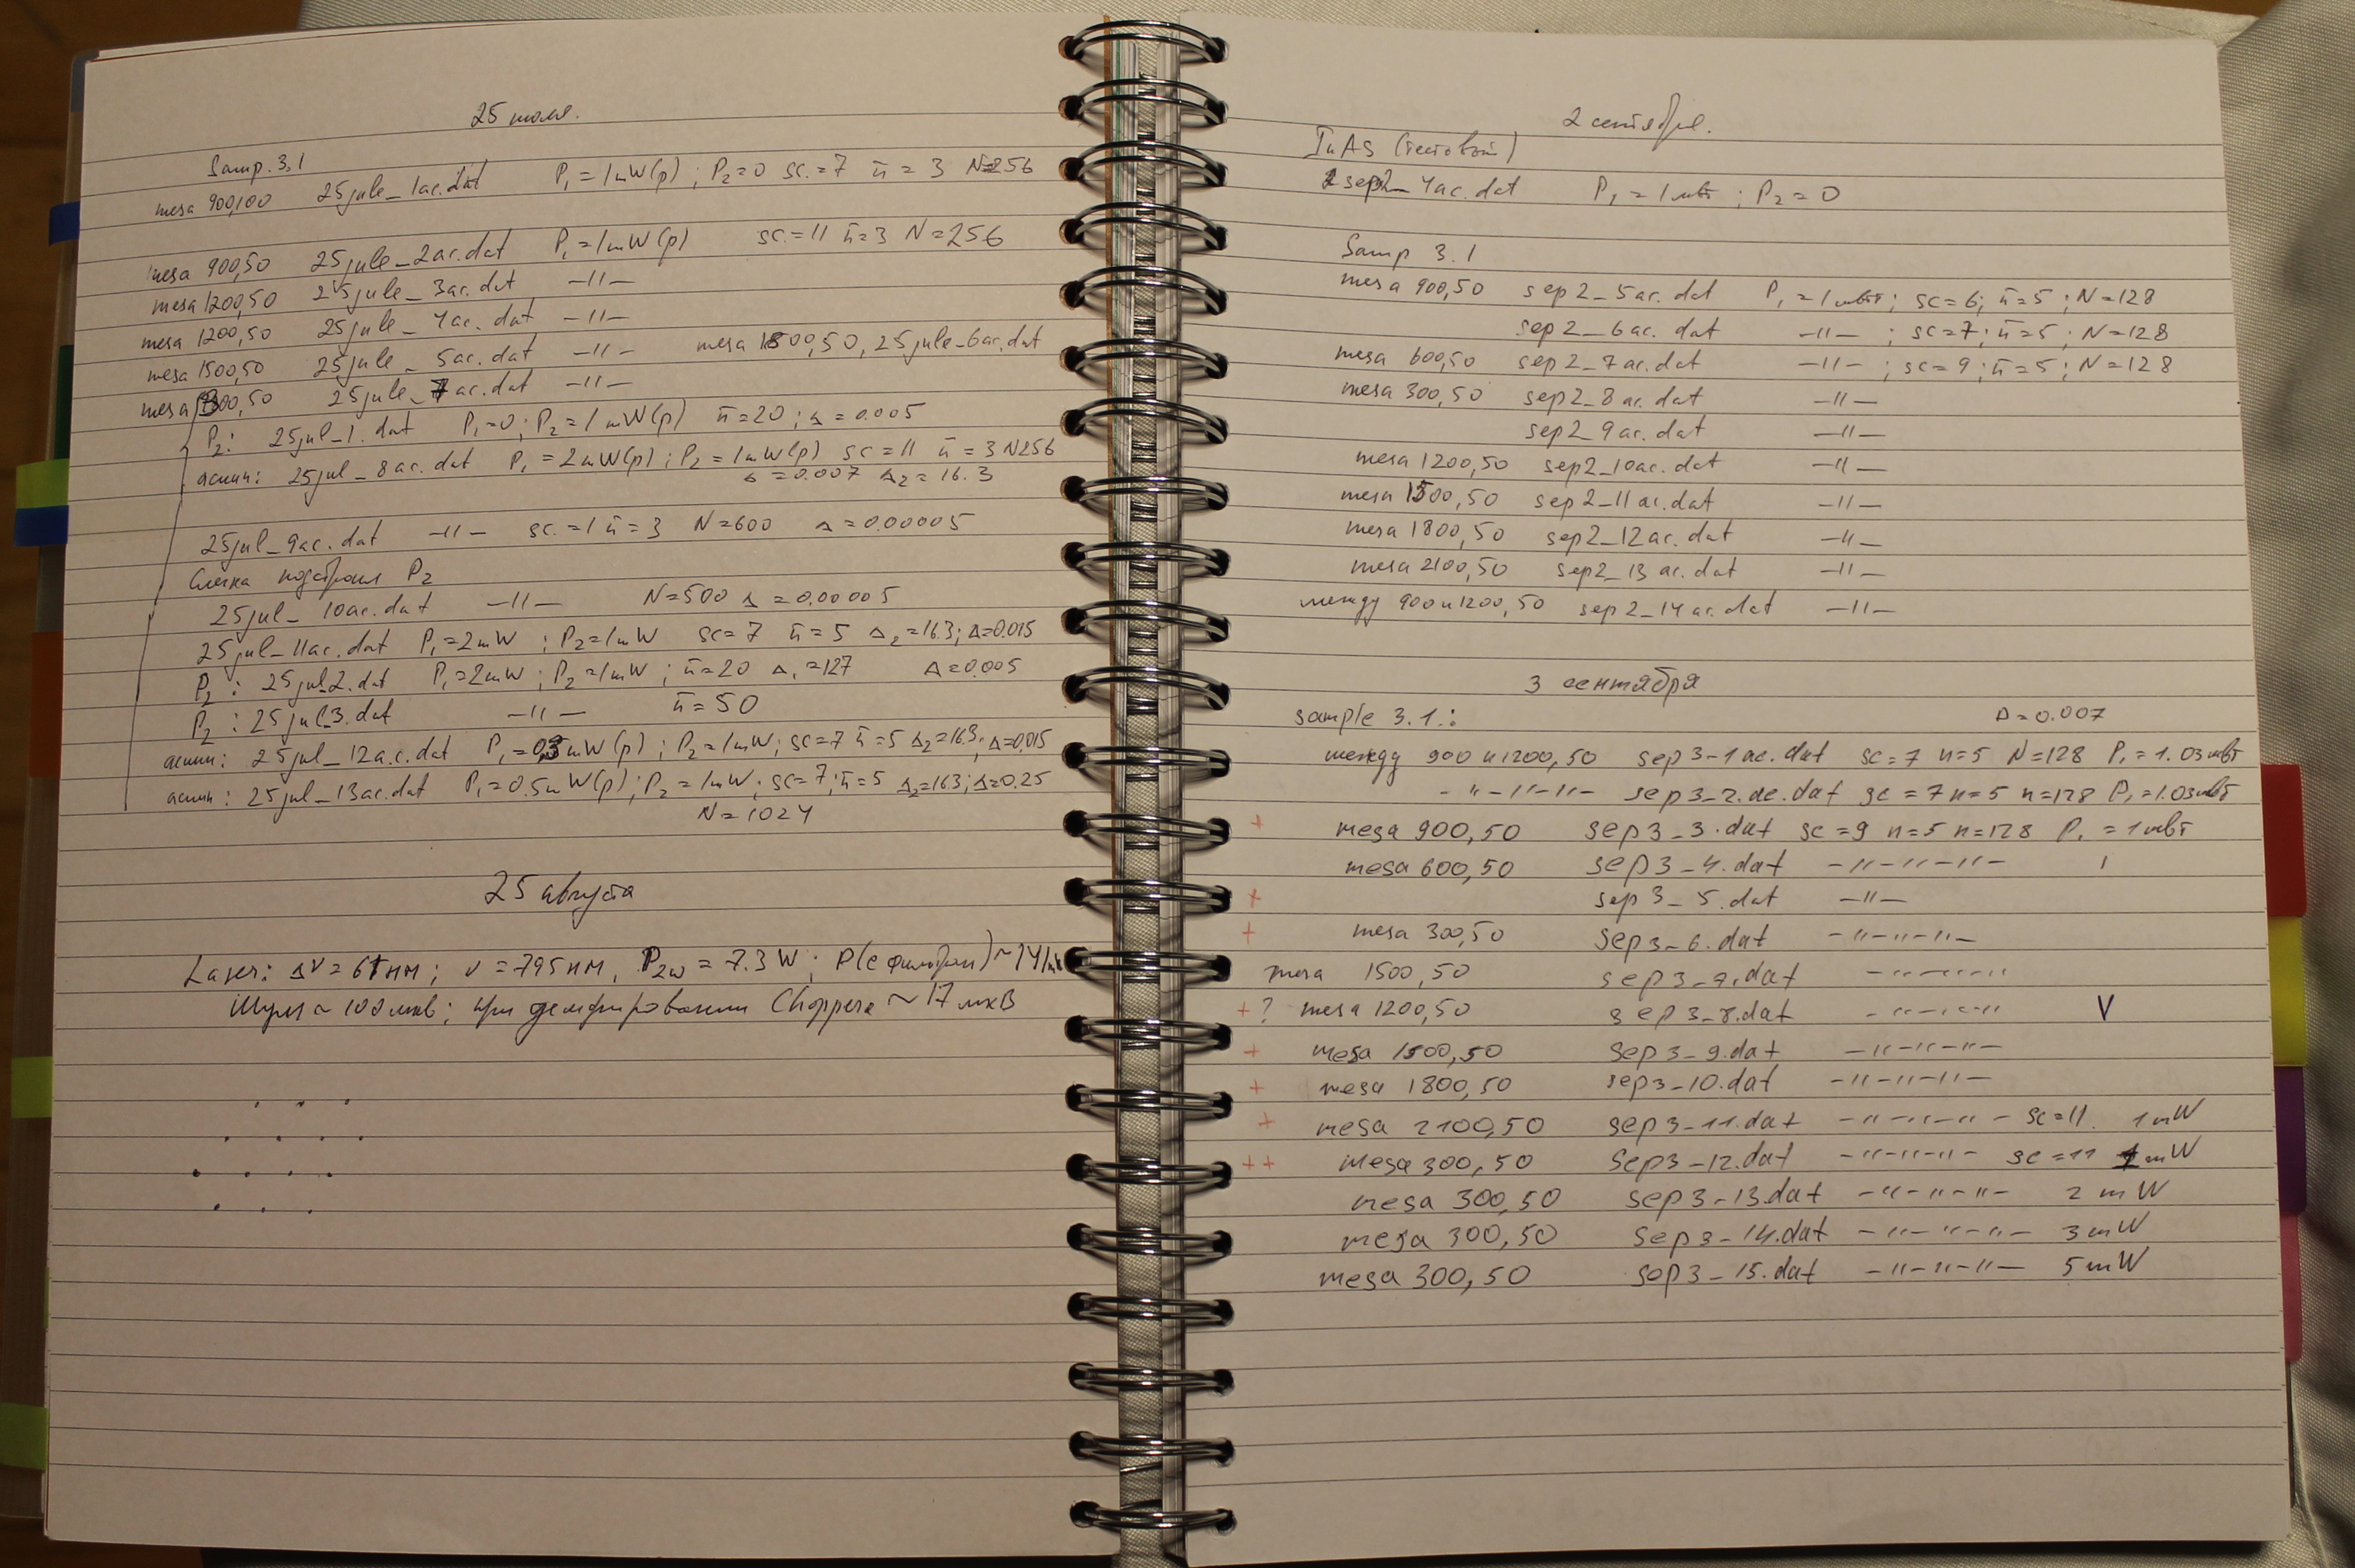 25 июля.
Samp. 3.1
mesa 900,100 25jule_1ac.dat P₁=1mW(p); P₂=0 sc.=7 n̄=3 N=256
mesa 900,50 25jule_2ac.dat P₁=1mW(p) sc.=11 n̄=3 N=256
mesa 1200,50 25jule_3ac.dat -"-
mesa 1200,50 25jule_4ac.dat -"-
mesa 1500,50 25jule_5ac.dat -"- mesa 1800,50, 25jule-6ac.dat
mesa 300,50 25jule_7ac.dat -"-
P₂: 25jul_1.dat P₁=0; P₂=1mW(p) n̄=20; Δ=0.005
асинх: 25jul_8ac.dat P₁=2mW(p); P₂=1mW(p) sc=11 n̄=3 N256
Δ=0.007 Δ₂=16.3
25jul_9ac.dat -"- sc.=1 n̄=3 N=600 Δ=0.00005
Слегка подстроил P₂
25jul_10ac.dat -"- N=500 Δ=0.00005
25jul_11ac.dat P₁=2mW; P₂=1mW sc=7 n̄=5 Δ₂=16.3; Δ=0.015
P₂: 25jul_2.dat P₁=2mW; P₂=1mW; n̄=20 Δ₁=127 Δ=0.005
P₂: 25jul_3.dat -"- n̄=50
асинх: 25jul_12ac.dat P₁=0,5mW(p); P₂=1mW; sc=7 n̄=5 Δ₂=16.3; Δ=0,015
асинх: 25jul_13ac.dat P₁=0.5mW(p); P₂=1mW; sc=7; n̄=5 Δ₂=16.3; Δ=0.25
N=1024
25 августа
Laser: Δν=61нм; ν=795нм, P₂ω=7.3W;
Шумы ~100мкв; при демпфировании Choppera ~17мкВ
2 сентября.
InAs (тестовый)
sep2_4ac.dat P₁=1мвт; P₂=0
Samp 3.1
mesa 900,50 sep2_5ac.dat P₁=1мвт; sc=6; n̄=5; N=128
sep2_6ac.dat -"-; sc=7; n̄=5; N=128
mesa 600,50 sep2_7ac.dat -"-; sc=9; n̄=5; N=128
mesa 300,50 sep2_8ac.dat -"-
sep2_9ac.dat -"-
mesa 1200,50 sep2_10ac.dat -"-
mesa 1500,50 sep2_11ac.dat -"-
mesa 1800,50 sep2_12ac.dat -"-
mesa 2100,50 sep2_13ac.dat -"-
между 900 и 1200,50 sep2_14ac.dat -"-
3 сентября
sample 3.1.: Δ=0.007
между 900 и 1200,50 sep3-1ac.dat sc=7 n=5 N=128 P₁=1.03мвт
-"-"-"- sep3-2.ac.dat sc=7 n=5 n=128 P₁=1.03мвт
+ mesa 900,50 sep3_3.dat sc=9 n=5 n=128 P₁=1мвт
mesa 600,50 sep3_4.dat -"-"-"- |
+ sep3_5.dat -"-
+ mesa 300,50 sep3-6.dat -"-"-"-
mesa 1500,50 sep3-7.dat -"-"-"-
+? mesa 1200,50 sep3-8.dat -"-"-"- V
+ mesa 1500,50 sep3-9.dat -"-"-"-
+ mesa 1800,50 sep3-10.dat -"-"-"-
+ mesa 2100,50 sep3-11.dat -"-"-"- sc=11. 1mW
++ mesa 300,50 sep3-12.dat -"-"-"- sc=11 1mW
mesa 300,50 sep3-13.dat -"-"-"- 2mW
mesa 300,50 sep3-14.dat -"-"-"- 3mW
mesa 300,50 sep3-15.dat -"-"-"- 5mW